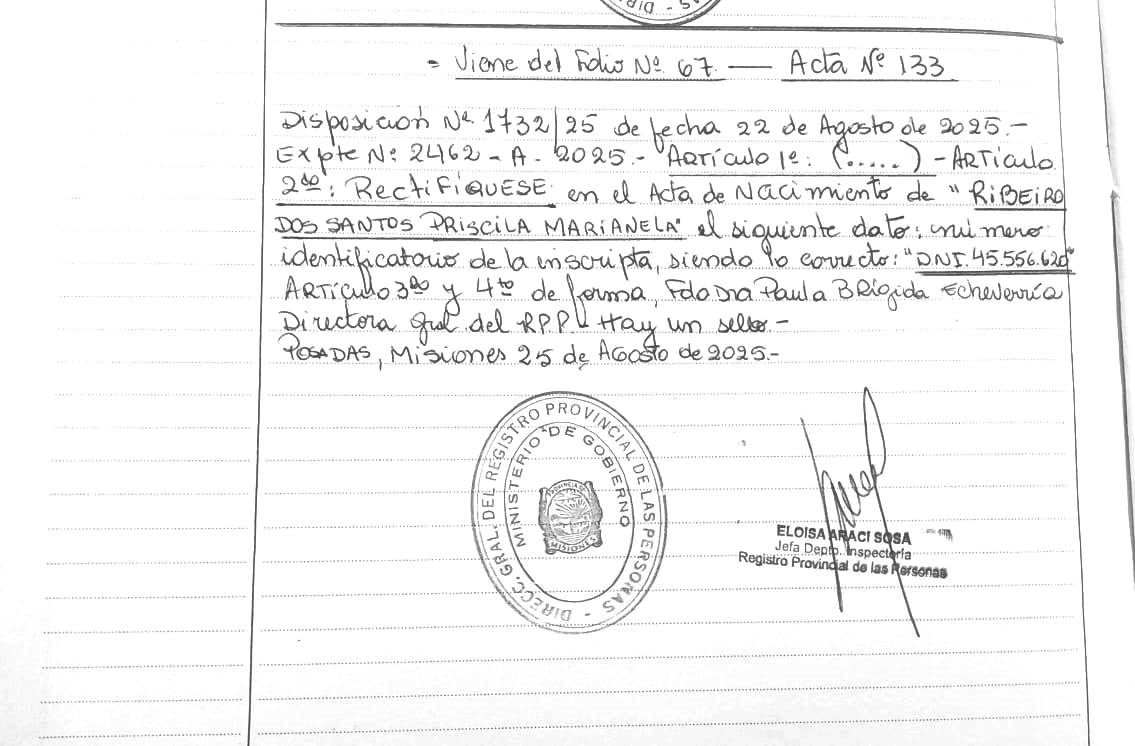 = Viene del Folio Nº 67 — Acta Nº 133
Disposición Nº 1732/25 de fecha 22 de Agosto de 2025.-
Expte Nº 2462 - A - 2025.- Artículo 1º: (.....) - ARTÍCULO
2do: RECTIFÍQUESE en el Acta de Nacimiento de "RIBEIRO
DOS SANTOS PRISCILA MARIANELA" el siguiente dato: número
identificatorio de la inscripta, siendo lo correcto: "DNI. 45.556.620"
ARTÍCULO 3ro y 4to de forma, Fdo Dra Paula BRígida Echeverría
Directora Gral del R.P.P. - Hay un sello.-
POSADAS, Misiones 25 de Agosto de 2025.-
DIRECC. GRAL. DEL REGISTRO PROVINCIAL DE LAS PERSONAS -
MINISTERIO DE GOBIERNO
PROVINCIA DE
MISIONES
ELOISA ARACI SOSA
Jefa Depto. Inspectoría
Registro Provincial de las Personas